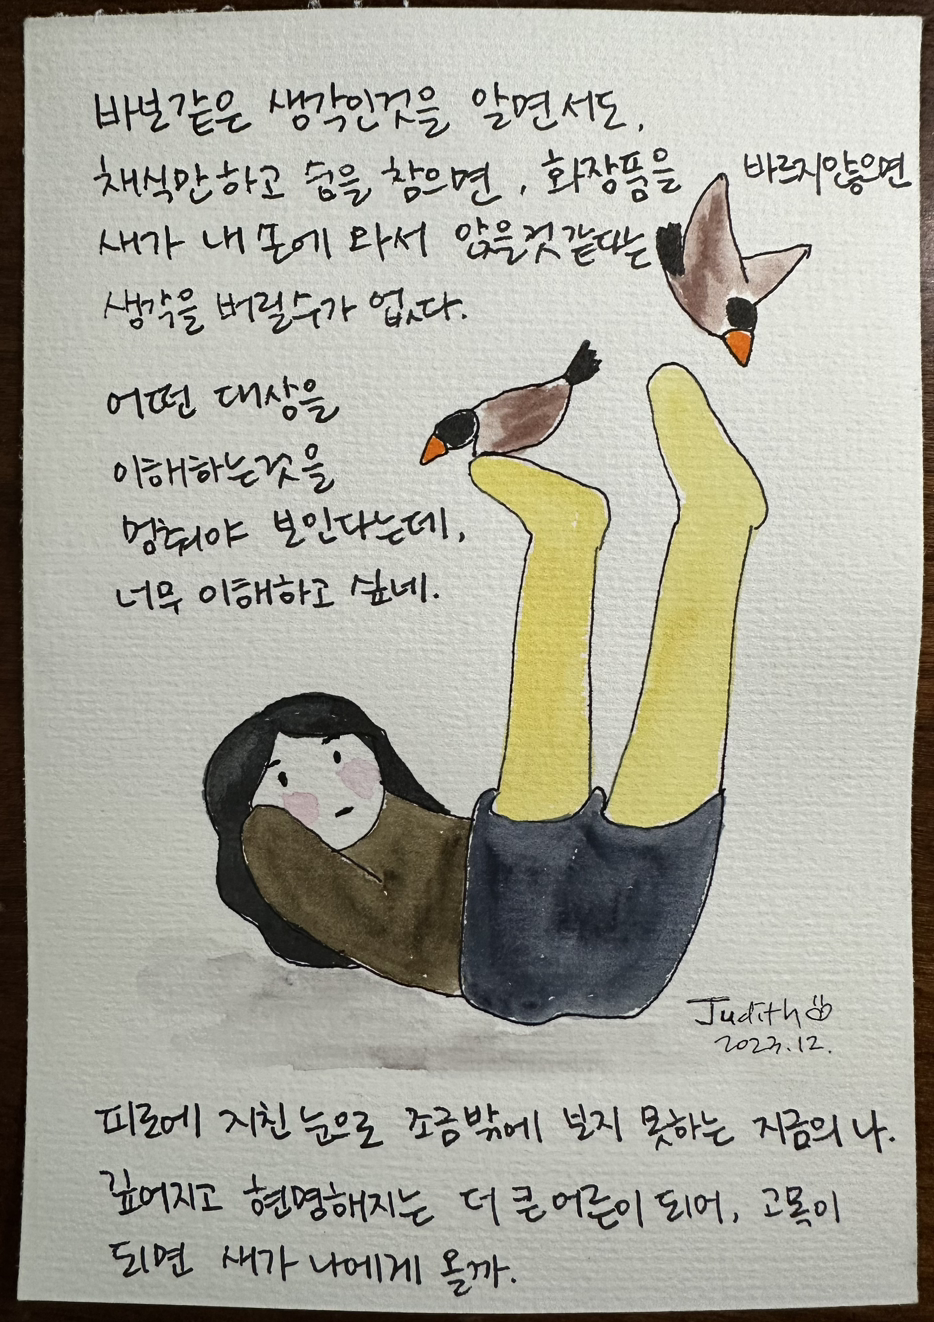 바보같은 생각인것을 알면서도,
채식만하고 숨을 참으면, 화장품을 바르지않으면
새가 내 또에 와서 앉을것같다는
생각을 버릴수가 없다.
어떤 대상을
이해하는것을
멈춰야 보인다는데,
너무 이해하고 싶네.
Judith
2023.12.
피로에 지친 눈으로 조금밖에 보지 못하는 지금의 나.
깊어지고 현명해지는 더 큰 어른이 되어, 고목이
되면 새가 나에게 올까.